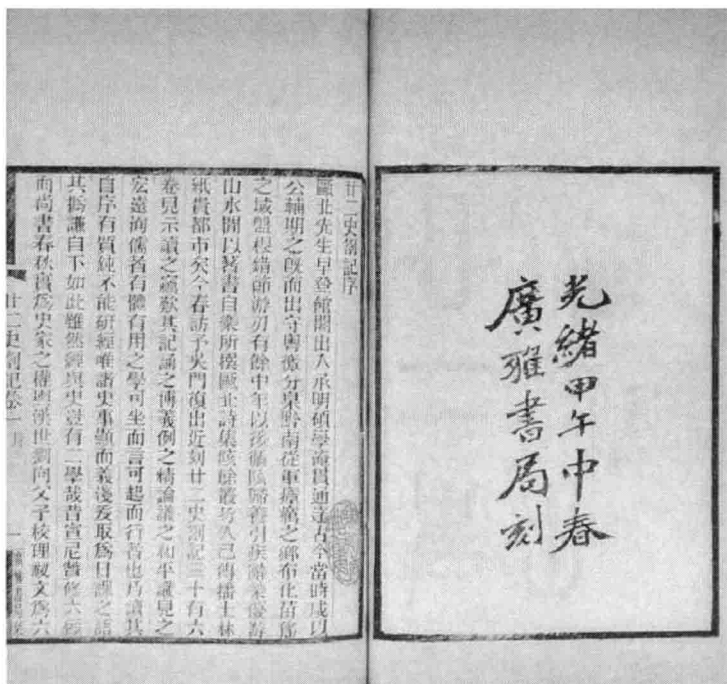 光緒甲午中春
廣雅書局刻
廿二史劄記序
甌北先生早登館閣出入承明碩學淹貫通達古今當時咸以
公輔期之旣而出守粵徼分臬黔南從軍瘴癘之鄉布化苗傜
之域盤根錯節游刃有餘中年以後循陔歸養引疾辭榮優游
山水閒以著書自樂所撰甌北詩集陔餘叢考久已傳播士林
紙貴都市矣今春訪予吳門復出近刻廿二史劄記三十有六
卷見示讀之竊歎其記誦之博義例之精論議之和平識見之
宏遠洵儒者有體有用之學可坐而言可起而行者也乃讀其
自序有質鈍不能研經唯諸史事顯而義淺爰取爲日課之語
其撝謙自下如此雖然經與史豈有二學哉昔宣尼贊修六經
而尚書春秋實爲史家之權輿漢世劉向父子校理祕文爲六
廿二史劄記卷一 序
一
廣雅書局栞